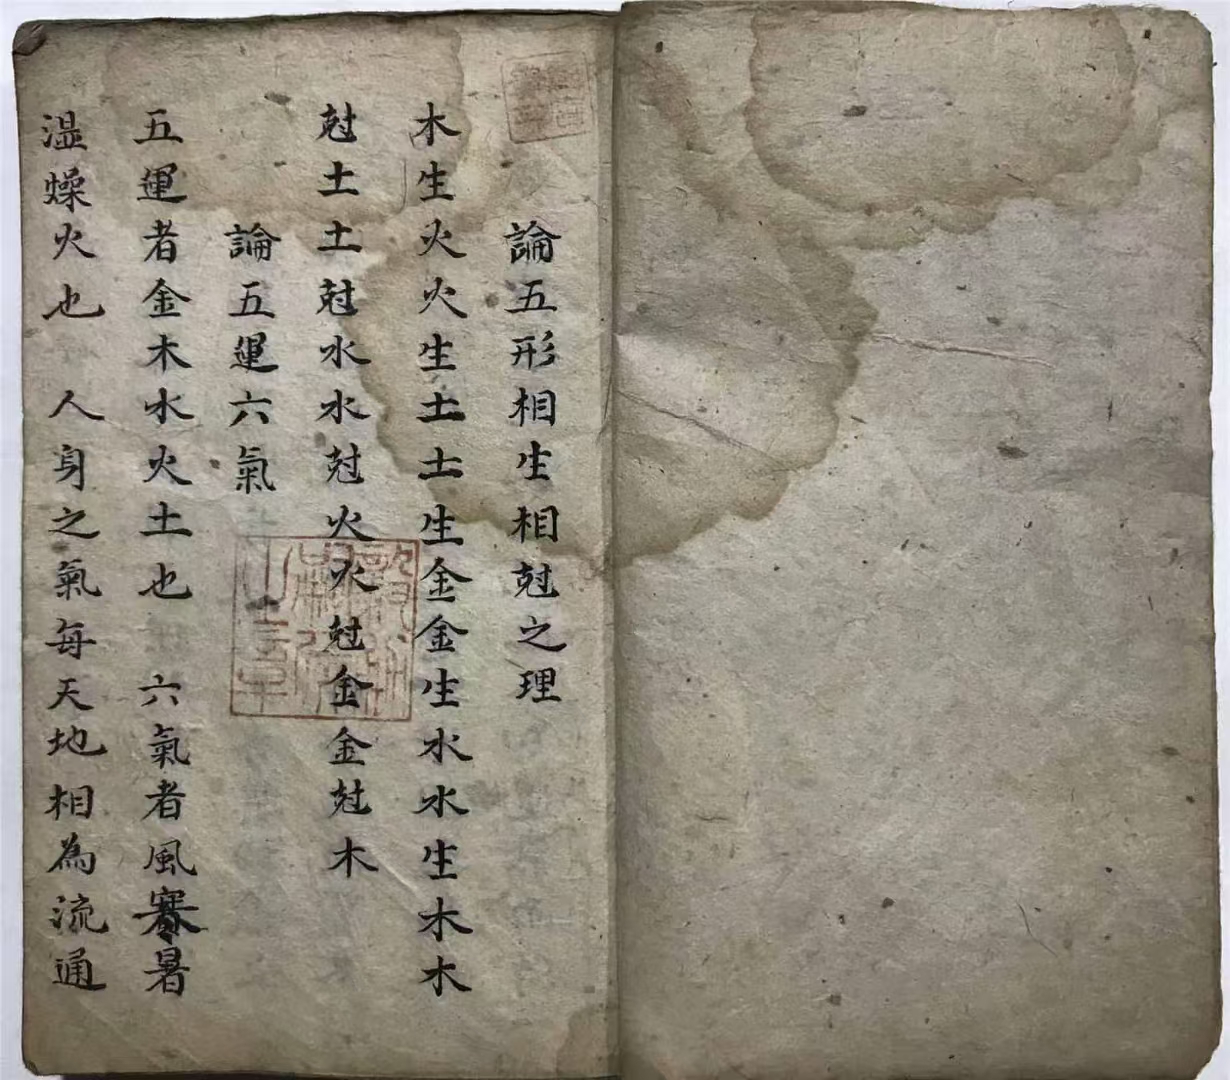 論五形相生相尅之理
木生火火生土土生金金生水水生木木
尅土土尅水水尅火火尅金金尅木
論五運六氣
五運者金木水火土也 六氣者風寒暑
濕燥火也 人身之氣每天地相為流通